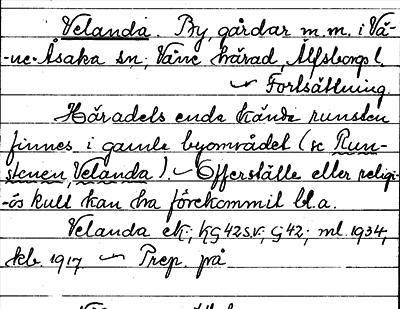 Velanda. By, gårdar m.m. i Vä-
-ne-Åsaka sn, Väne härad, Älfsborgs l.
~ Fortsättning.
Häradets enda kända runsten
finnes i gamla byområdet (se Run-
stenen, Velanda). ~ Offerställe eller religi-
-ös kult kan ha förekommit bl.a.
Velanda ek; KG 42 S.V.; G 42; ml. 1934,
kb. 1917 ~ Prep. på